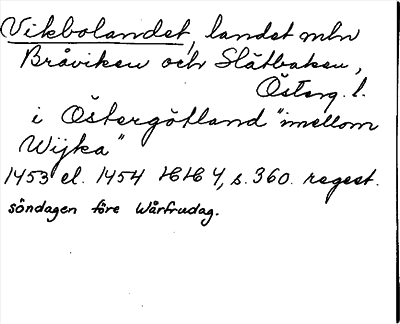 Vikbolandet, landet mln
Bråviken och Slätbaken,
Österg. l.
i Östergötland "imellom
Wijka"
1453 el. 1454 HH 4, s. 360. regest.
söndagen före Wårfrudag.